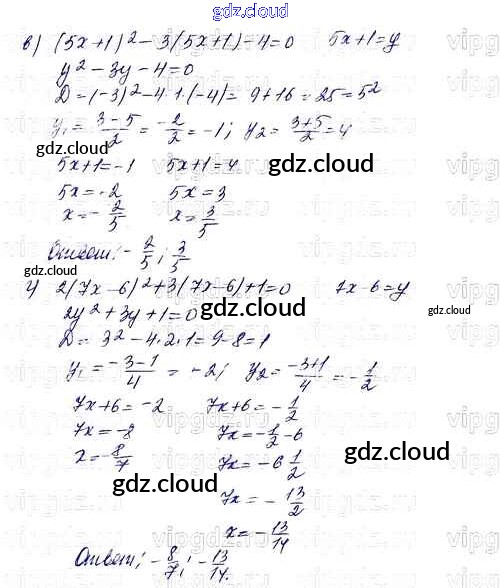 gdz.cloud
в) (5x+1)² − 3(5x+1) − 4 = 0    5x+1=y
y² − 3y − 4 = 0
D = (−3)² − 4·1·(−4) = 9+16 = 25 = 5²
y₁ = (3−5)/2 = −2/2 = −1; y₂ = (3+5)/2 = 4
gdz.cloud
5x+1=−1    5x+1=4
gdz.cloud
5x=−2    5x=3
x=−2/5    x=3/5
gdz.cloud
Ответ: −2/5; 3/5
gdz.cloud
г) 2(7x−6)²+3(7x−6)+1=0    7x−6=y
2y²+3y+1=0
gdz.cloud
gdz.cloud
D = 3²−4·2·1=9−8=1
y₁ = (−3−1)/4 = −2; y₂ = (−3+1)/4 = −1/2
7x+6=−2    7x+6=−1/2
7x=−8    7x=−1/2−6
x=−8/7    7x=−6 1/2
gdz.cloud
gdz.cloud
7x=−13/2
x=−13/14
gdz.cloud
Ответ: −8/7; −13/14.